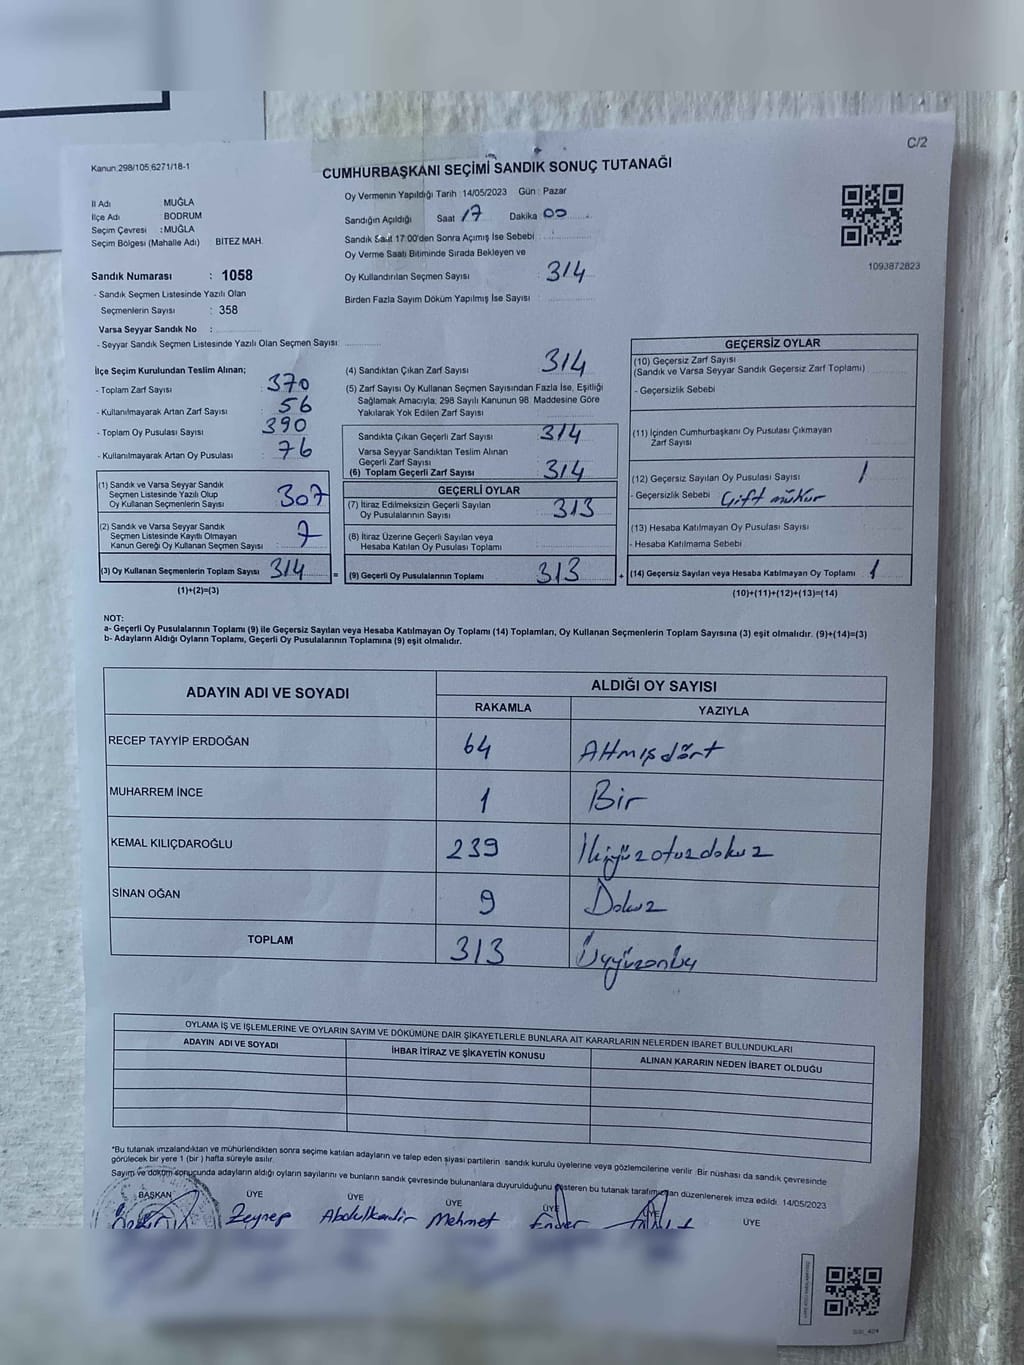 C/2
Kanun:298/105,6271/18-1
CUMHURBAŞKANI SEÇİMİ SANDIK SONUÇ TUTANAĞI
İl Adı MUĞLA
İlçe Adı BODRUM
Seçim Çevresi : MUĞLA
Seçim Bölgesi (Mahalle Adı) BİTEZ MAH.
Sandık Numarası : 1058
- Sandık Seçmen Listesinde Yazılı Olan
Seçmenlerin Sayısı : 358
Varsa Seyyar Sandık No :
- Seyyar Sandık Seçmen Listesinde Yazılı Olan Seçmen Sayısı:
Oy Vermenin Yapıldığı Tarih : 14/05/2023 Gün : Pazar
Sandığın Açıldığı Saat 17 Dakika 00
Sandık Saat 17:00'den Sonra Açımış İse Sebebi :
Oy Verme Saati Bitiminde Sırada Bekleyen ve
Oy Kullandırılan Seçmen Sayısı : 314
Birden Fazla Sayım Döküm Yapılmış İse Sayısı :
1093872823
İlçe Seçim Kurulundan Teslim Alınan;
- Toplam Zarf Sayısı : 370
- Kullanılmayarak Artan Zarf Sayısı : 56
- Toplam Oy Pusulası Sayısı : 390
- Kullanılmayarak Artan Oy Pusulası : 76
(1) Sandık ve Varsa Seyyar Sandık
Seçmen Listesinde Yazılı Olup
Oy Kullanan Seçmenlerin Sayısı : 307
(2) Sandık ve Varsa Seyyar Sandık
Seçmen Listesinde Kayıtlı Olmayan
Kanun Gereği Oy Kullanan Seçmen Sayısı : 7
(3) Oy Kullanan Seçmenlerin Toplam Sayısı 314
(1)+(2)=(3)
(4) Sandıktan Çıkan Zarf Sayısı : 314
(5) Zarf Sayısı Oy Kullanan Seçmen Sayısından Fazla İse, Eşitliği
Sağlamak Amacıyla, 298 Sayılı Kanunun 98. Maddesine Göre
Yakılarak Yok Edilen Zarf Sayısı :
Sandıkta Çıkan Geçerli Zarf Sayısı : 314
Varsa Seyyar Sandıktan Teslim Alınan
Geçerli Zarf Sayısı :
(6) Toplam Geçerli Zarf Sayısı : 314
GEÇERLİ OYLAR
(7) İtiraz Edilmeksizin Geçerli Sayılan
Oy Pusulalarının Sayısı : 313
(8) İtiraz Üzerine Geçerli Sayılan veya
Hesaba Katılan Oy Pusulası Toplamı :
=
(9) Geçerli Oy Pusulalarının Toplamı : 313
+
GEÇERSİZ OYLAR
(10) Geçersiz Zarf Sayısı
(Sandık ve Varsa Seyyar Sandık Geçersiz Zarf Toplamı)
- Geçersizlik Sebebi
(11) İçinden Cumhurbaşkanı Oy Pusulası Çıkmayan
Zarf Sayısı
(12) Geçersiz Sayılan Oy Pusulası Sayısı : 1
- Geçersizlik Sebebi Çift mühür
(13) Hesaba Katılmayan Oy Pusulası Sayısı
- Hesaba Katılmama Sebebi
(14) Geçersiz Sayılan veya Hesaba Katılmayan Oy Toplamı : 1
(10)+(11)+(12)+(13)=(14)
NOT:
a- Geçerli Oy Pusulalarının Toplamı (9) ile Geçersiz Sayılan veya Hesaba Katılmayan Oy Toplamı (14) Toplamları, Oy Kullanan Seçmenlerin Toplam Sayısına (3) eşit olmalıdır. (9)+(14)=(3)
b- Adayların Aldığı Oyların Toplamı, Geçerli Oy Pusulalarının Toplamına (9) eşit olmalıdır.
ADAYIN ADI VE SOYADI ALDIĞI OY SAYISI
RAKAMLA YAZIYLA
RECEP TAYYİP ERDOĞAN 64 Altmışdört
MUHARREM İNCE 1 Bir
KEMAL KILIÇDAROĞLU 239 İkiyüzotuzdokuz
SİNAN OĞAN 9 Dokuz
TOPLAM 313
OYLAMA İŞ VE İŞLEMLERİNE VE OYLARIN SAYIM VE DÖKÜMÜNE DAİR ŞİKAYETLERLE BUNLARA AİT KARARLARIN NELERDEN İBARET BULUNDUKLARI
ADAYIN ADI VE SOYADI İHBAR İTİRAZ VE ŞİKAYETİN KONUSU ALINAN KARARIN NEDEN İBARET OLDUĞU
*Bu tutanak imzalandıktan ve mühürlendikten sonra seçime katılan adayların ve talep eden siyasi partilerin sandık kurulu üyelerine veya gözlemcilerine verilir. Bir nüshası da sandık çevresinde
görülecek bir yere 1 (bir ) hafta süreyle asılır.
Sayım ve döküm sonucunda adayların aldığı oyların sayılarını ve bunların sandık çevresinde bulunanlara duyurulduğunu gösteren bu tutanak tarafımızdan düzenlenerek imza edildi. 14/05/2023
BAŞKAN ÜYE ÜYE ÜYE ÜYE ÜYE ÜYE
Zeynep Abdulkadir Mehmet Ender